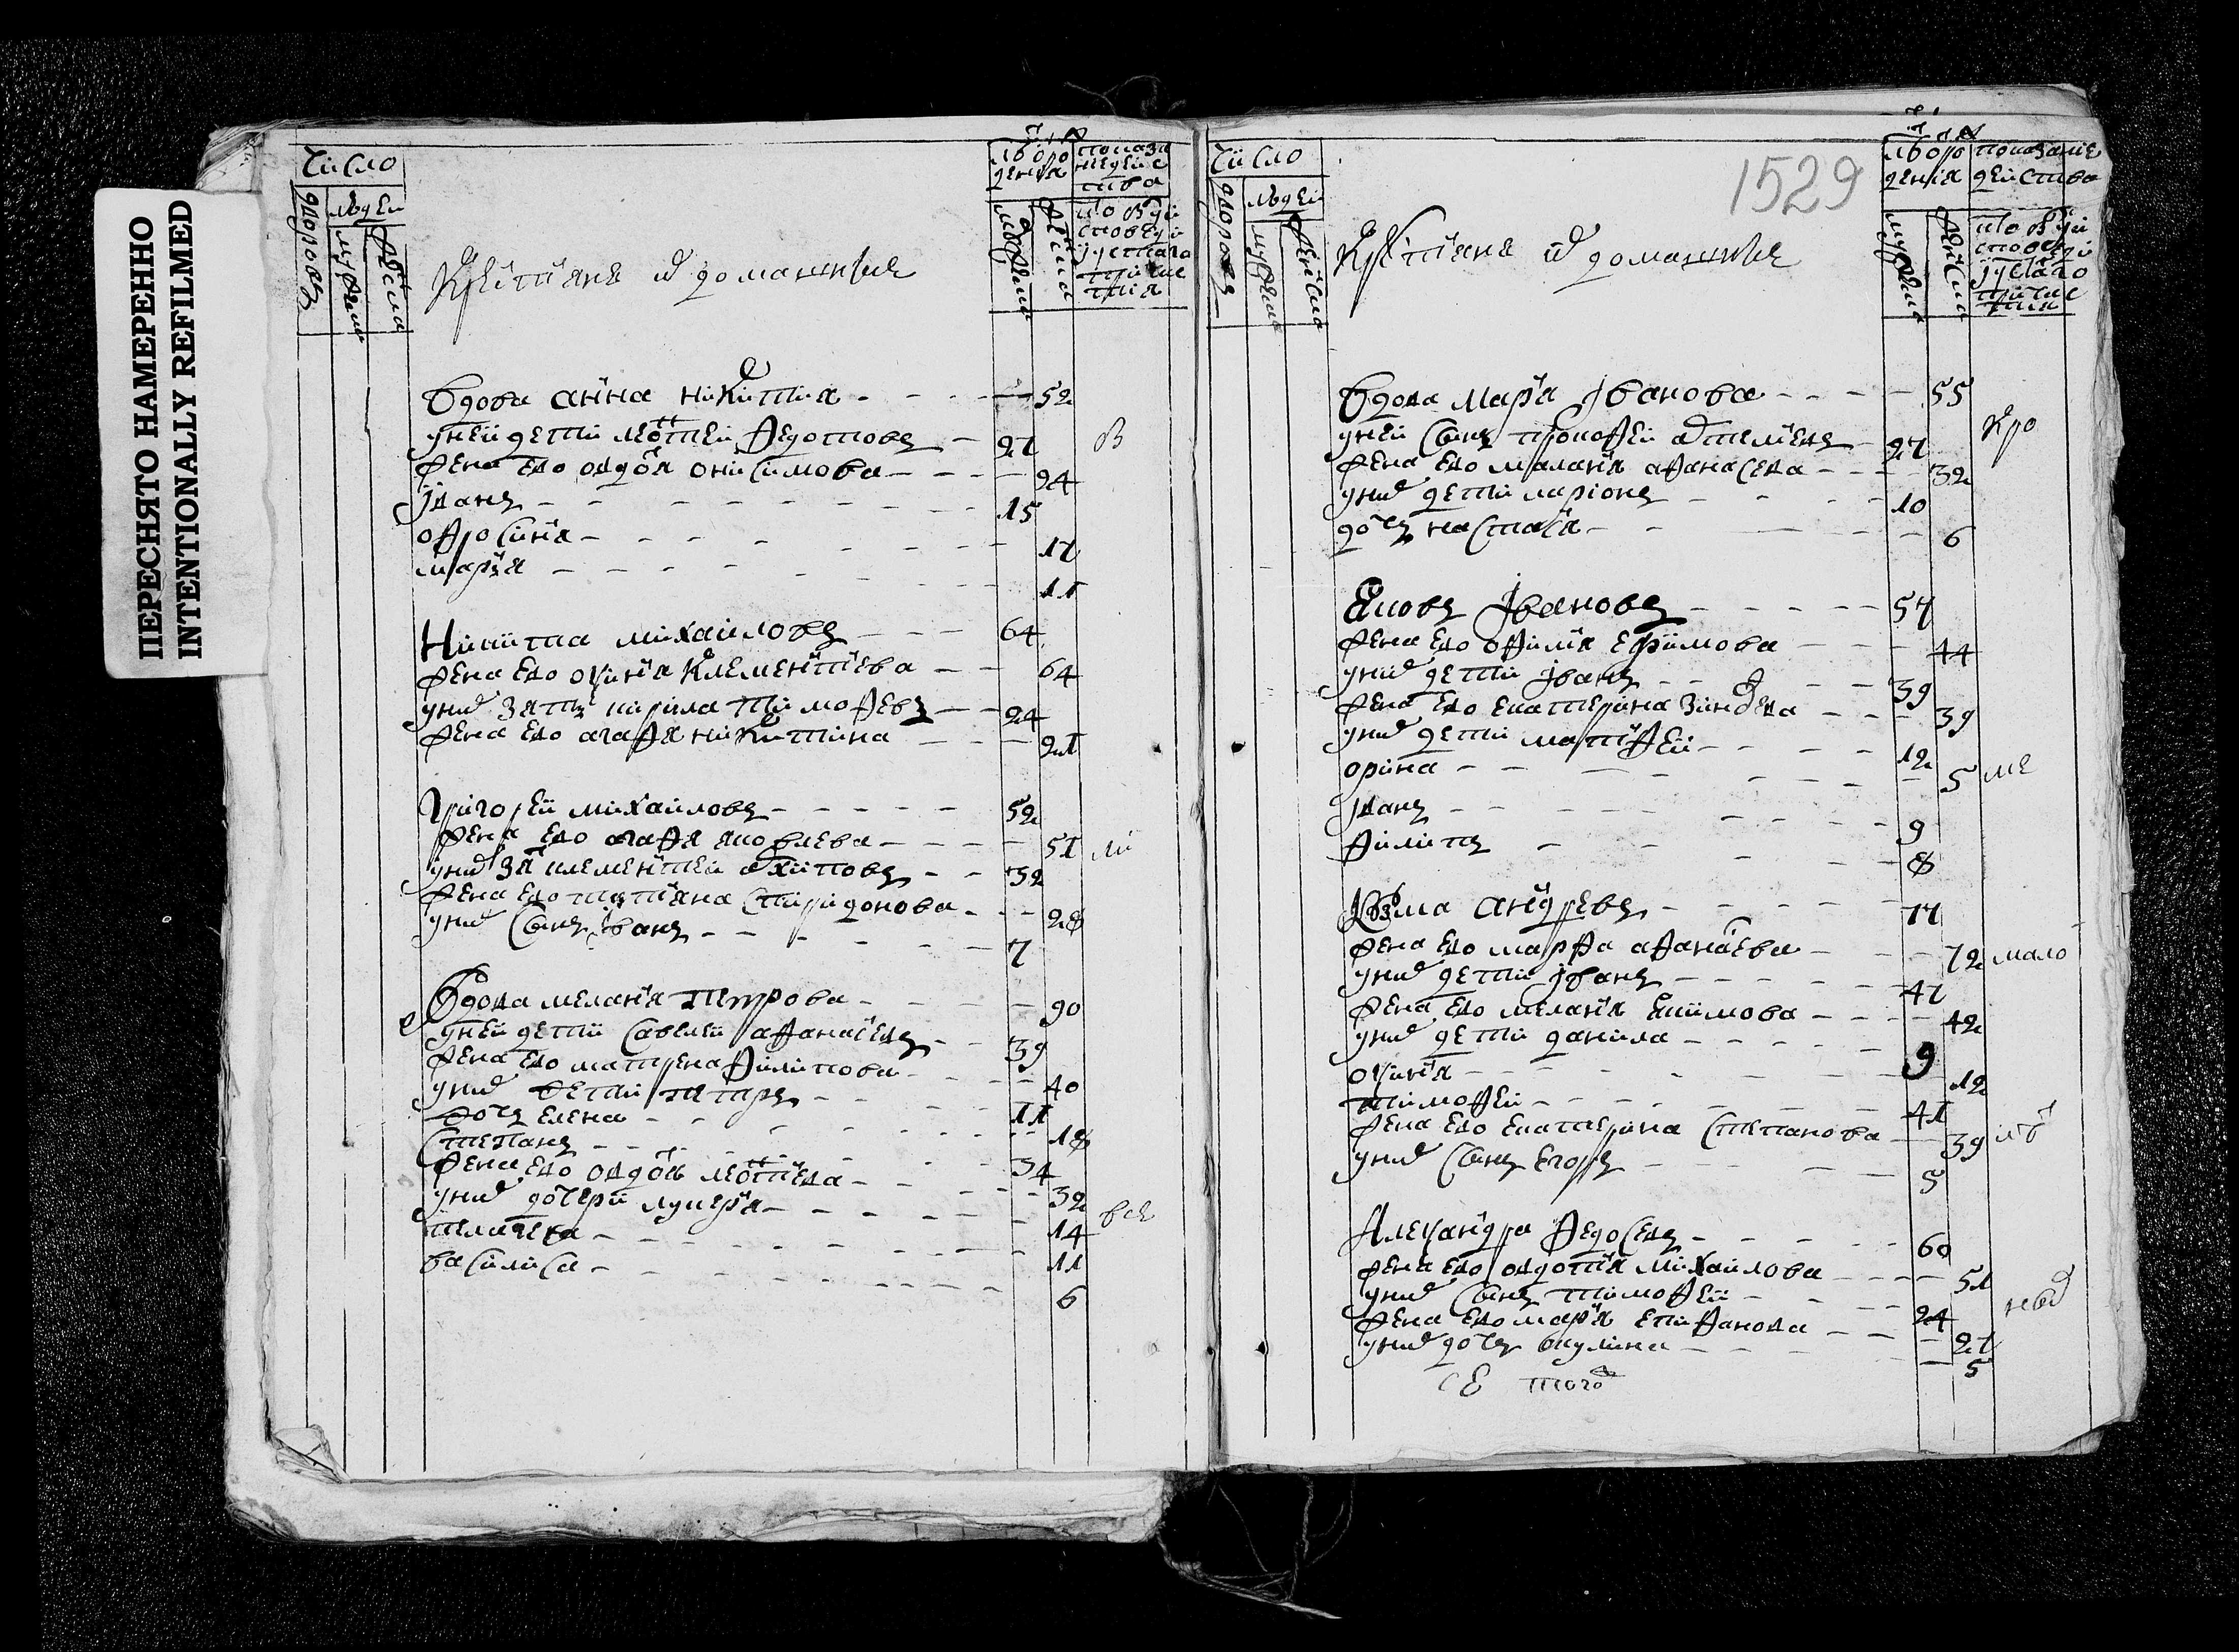 ПЕРЕСНЯТО НАМЕРЕННО
INTENTIONALLY REFILMED
число
дворовъ
людей
мужеска
женска
Крестьяне и домашних
вдова анна никитина - 52
у ней дети леотей федотовъ - 27
жена ево овдотя онисимова - 24
иванъ - 15
офросиня - 17
мария - 11
Никита михайловъ - 64
жена ево оксиня клементиева - 64
у них зять кирила тимофевъ - 24
жена ево агафя никитина - 21
григорей михайловъ - 52
жена ево агафя яковлева - 51
у них зя клементей архиповъ - 32
жена ево татияна спиридонова - 28
у них сынъ иванъ - 7
вдова меланя петрова - 90
у ней дети савелий афанасевъ - 39
жена ево матрена филипова - 40
у них дети петръ - 11
дочь елена - 18
степанъ - 34
жена ево овдотя леотиева - 32
у них дочери лукеря - 14
пелагея - 11
василиса - 6
1529
число
дворовъ
людей
мужеска
женска
Крестьяне и домашних
вдова мария иванова - 55
у ней сынъ прокофей артемевъ - 27
жена ево маланя афанасева - 32
у них дети ларионъ - 10
дочь настася - 6
Кро
Яковъ Ивановъ - 57
жена ево офимя ефимова - 44
у них дети иванъ - 39
жена ево екатерина - 39
у них дети матфей - 12
орина - 5
иванъ - 9
филипъ - 8
Козма андревъ - 77
жена ево марфа афанасева - 72
мало
у них дети иванъ - 47
жена ево меланя екимова - 42
у них дети данила - 9
оксиня - 12
тимофей - 41
жена ево екатерина степанова - 39
у них сынъ егоръ - 5
Александра федосевъ - 60
жена ево овдотия михайлова - 51
у них сынъ тимофей - 24
жена ево мария епифанова - 27
у них дочь окулина - 5